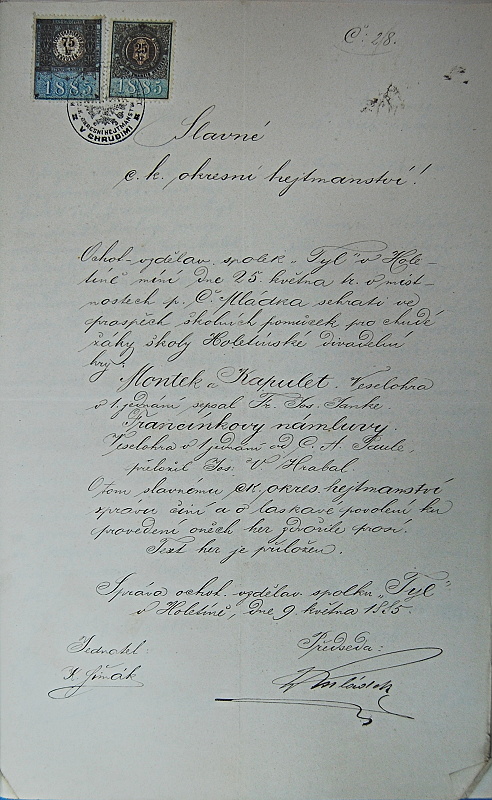 Č: 28.
75
25
1885
1885
V CHRUDIMI
Slavné
c. k. okresní hejtmanství!
Ochot-vzdělav. spolek „Tyl” v Hole-
tíně míní dne 25. května t.r. v míst-
nostech p. Č. Mládka sehrati ve
prospěch školních pomůcek pro chudé
žáky školy Holetínské divadelní
hry:
Montek a Kapulet. Veselohra
v 1 jednání sepsal Fr. Jos.
Francinkovy námluvy.
Veselohra v 1 jednání od C. A. Paule,
přeložil Jos. V Hrabal.
O tom slavnému ck. okres. hejtmanství
zprávu činí a o laskavé povolení ku
provedení oněch her zdvořile prosí.
Text her je přiložen.
Správa ochot. vzdělav. spolku „Tyl”
v Holetíně, dne 9. května 1885.
Jednatel:
Předseda: